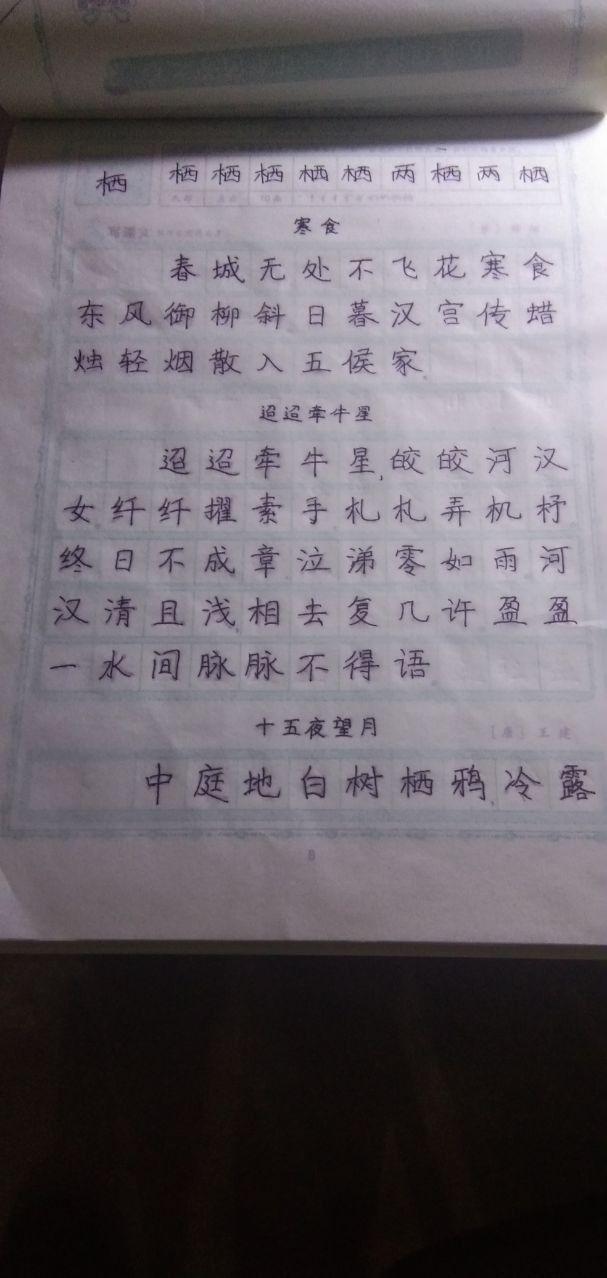 栖 栖 栖 栖 栖 栖 两 栖 两 栖
寒食
春城无处不飞花寒食
东风御柳斜日暮汉宫传蜡
烛轻烟散入五侯家
迢迢牵牛星
迢迢牵牛星,皎皎河汉
女纤纤擢素手札札弄机杼
终日不成章泣涕零如雨河
汉清且浅相去复几许盈盈
一水间脉脉不得语
十五夜望月
[唐] 王建
中庭地白树栖鸦冷露
8